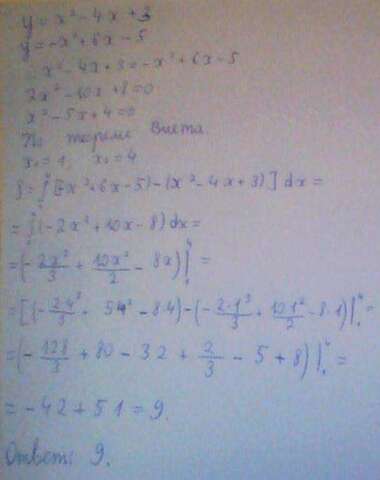 y = x² - 4x + 3
y = -x² + 6x - 5
x² - 4x + 3 = -x² + 6x - 5
2x² - 10x + 8 = 0
x² - 5x + 4 = 0
По теореме Виета
x₁ = 1, x₂ = 4
S = ∫₁⁴ [(-x² + 6x - 5) - (x² - 4x + 3)] dx =
= ∫₁⁴ (-2x² + 10x - 8) dx =
= (-2x³/3 + 10x²/2 - 8x)|₁⁴ =
= [(-2·4³/3 + 5·4² - 8·4) - (-2·1³/3 + 10·1²/2 - 8·1)|₁⁴ =
= (-128/3 + 80 - 32 + 2/3 - 5 + 8)|₁⁴ =
= -42 + 51 = 9.
Ответ: 9.